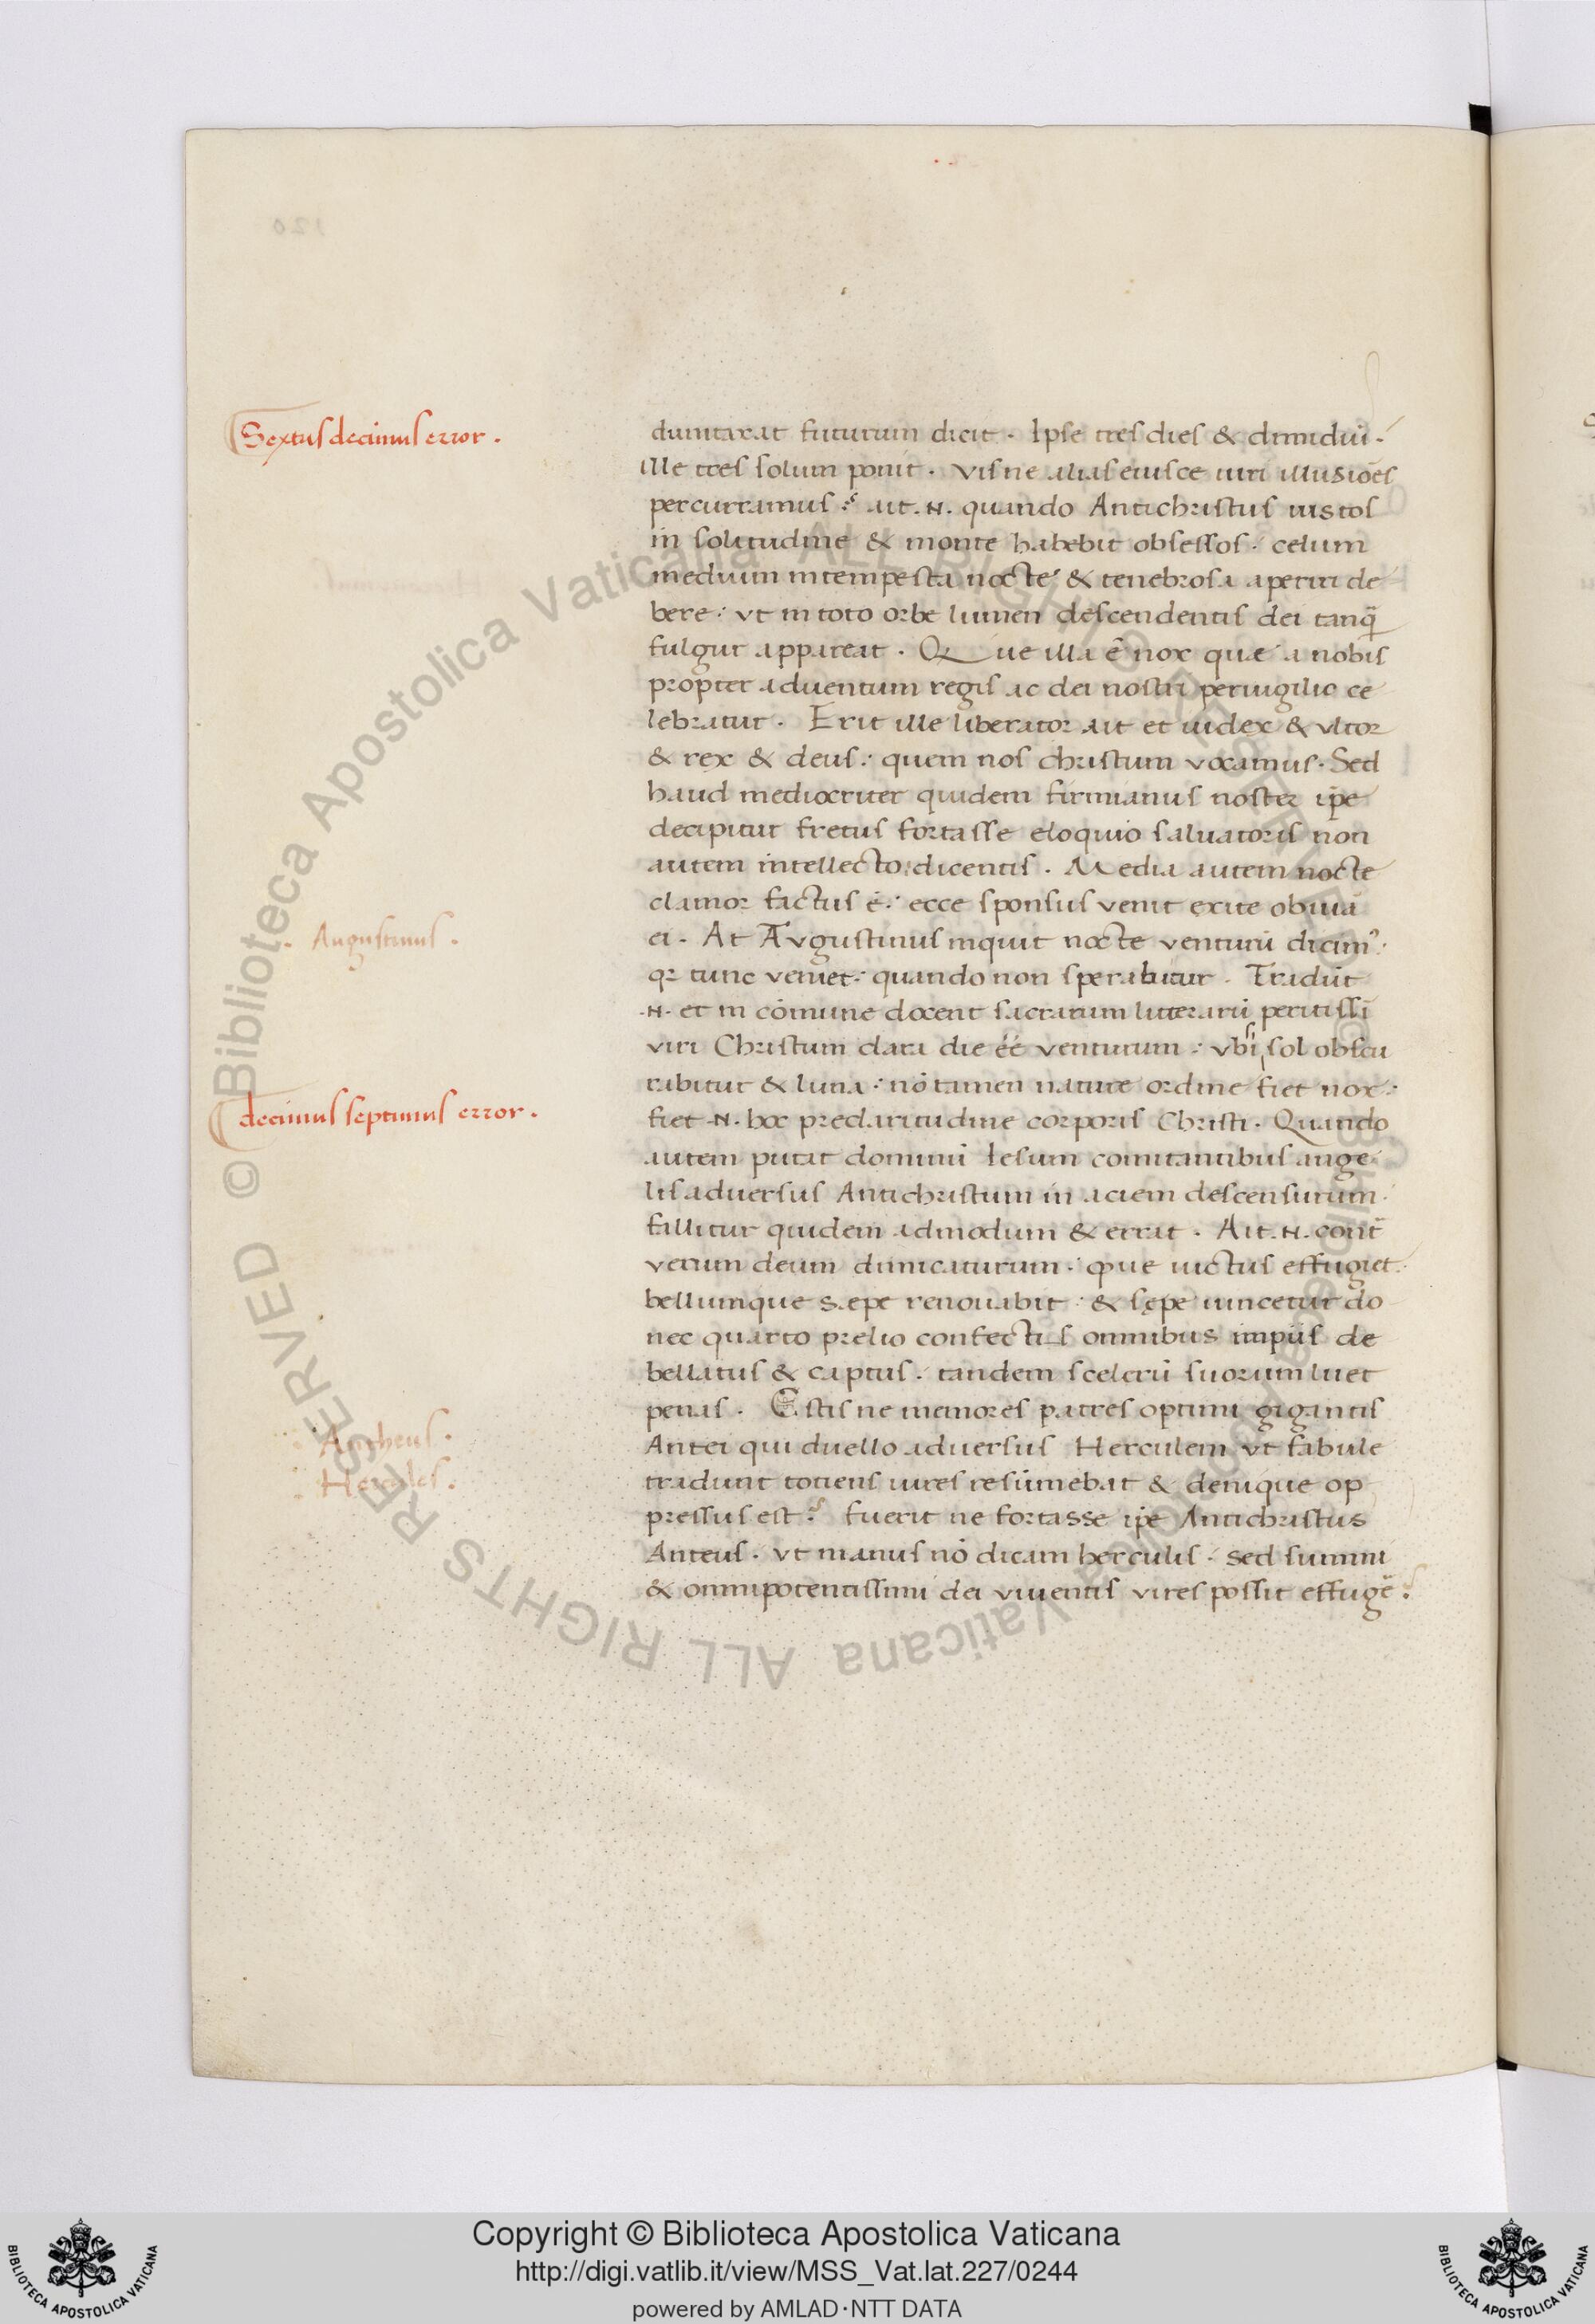 Sextus decimus error.
dumtaxat futurum dicit. Ipse tres dies & dimidiũ.
ille tres solum ponit. visne alias eiusce uiri illusiões
percurramus? ait .N. quando Antichristus iustos
in solitudine & monte habebit obsessos: celum
medium intempesta nocte & tenebrosa aperiri de
bere: vt in toto orbe lumen descendentis dei tanq̃
fulgur appareat. Que illa ẽ nox que a nobis
propter aduentum regis ac dei nostri peruigilio ce
lebratur. Erit ille liberator ait et iudex & vltor
& rex & deus: quem nos christum vocamus. Sed
haud mediocriter quidem firmianus noster ip̃e
decipitur fretus fortasse eloquio saluatoris non
autem intellecto: dicentis. Media autem nocte
clamor factus ẽ: ecce sponsus venit exite obuiã
Augustinus.
ei. At Avgustinus inquit nocte venturũ dicim⁹:
qz tunc veniet: quando non sperabitur. Tradũt
.N. et in cõmune docent sacrarum litterarũ peritissĩ
viri Christum clara die ẽẽ venturum: vbi si sol obscu
rabitur & luna: nõ tamen nature ordine fiet nox:
decimus septimus error.
fiet .N. hoc preclaritudine corporis Christi. Quando
autem putat dominũ Iesum comitantibus ange
lis aduersus Antichristum in aciem descensurum.
fallitur quidem admodum & errat. Ait .N. cont̃
verum deum dimicaturum: que uictus effugiet.
bellumque sepe renouabit: & sępe uincetur do
nec quarto prelio confectis omnibus impiis de
bellatus & captus. tandem scelerũ suorum luet
penas. Estis ne memores patres optimi gigantis
Antheus.
Antei qui duello aduersus Herculem vt fabule
Hercules.
tradunt totiens uires resũmebat & denique op
pressus est? fuerit ne fortasse ip̃e Antichristus
Anteus. vt manus nõ dicam herculis. sed summi
& omnipotentissimi dei viuentis vires possit effugẽ?
Copyright © Biblioteca Apostolica Vaticana
http://digi.vatlib.it/view/MSS_Vat.lat.227/0244
powered by AMLAD·NTT DATA